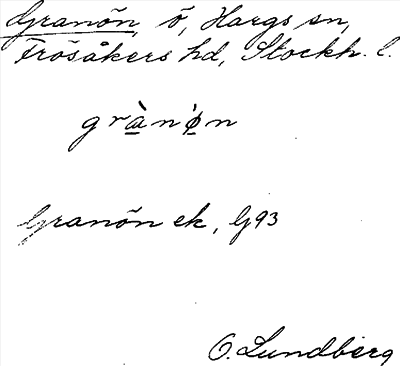 Granön, ö, Hargs sn,
Frösåkers hd, Stockh. l.
grànø̀n
Granön ek, G93
O. Lundberg